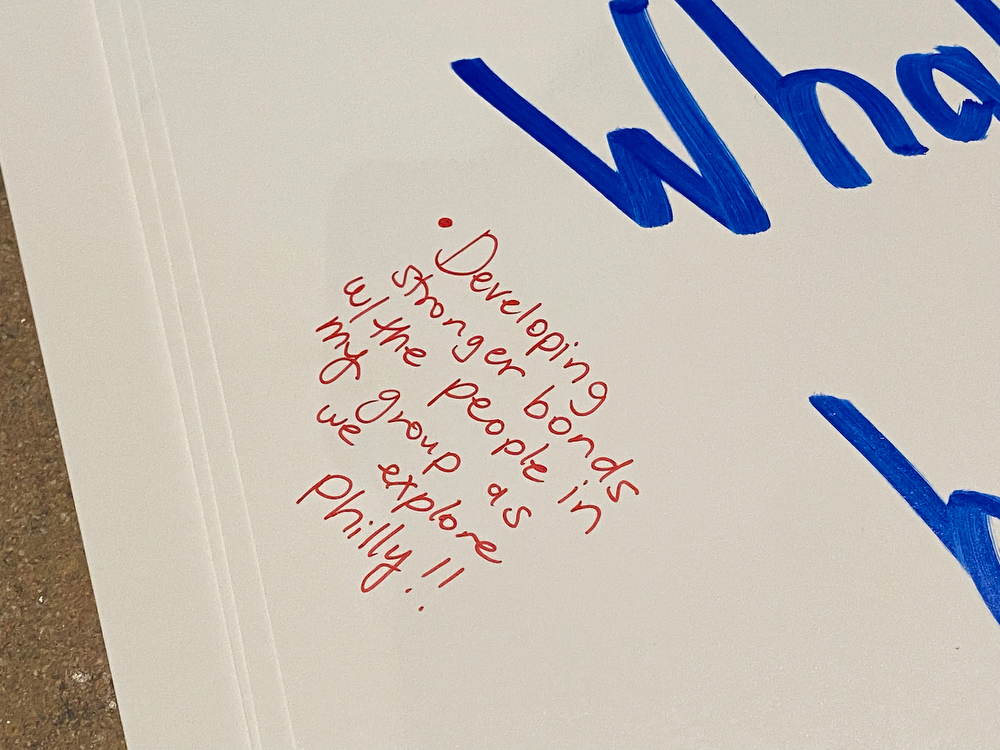 Wha
• Developing
stronger bonds
w/ the people in
my group as
we explore
Philly!!
h